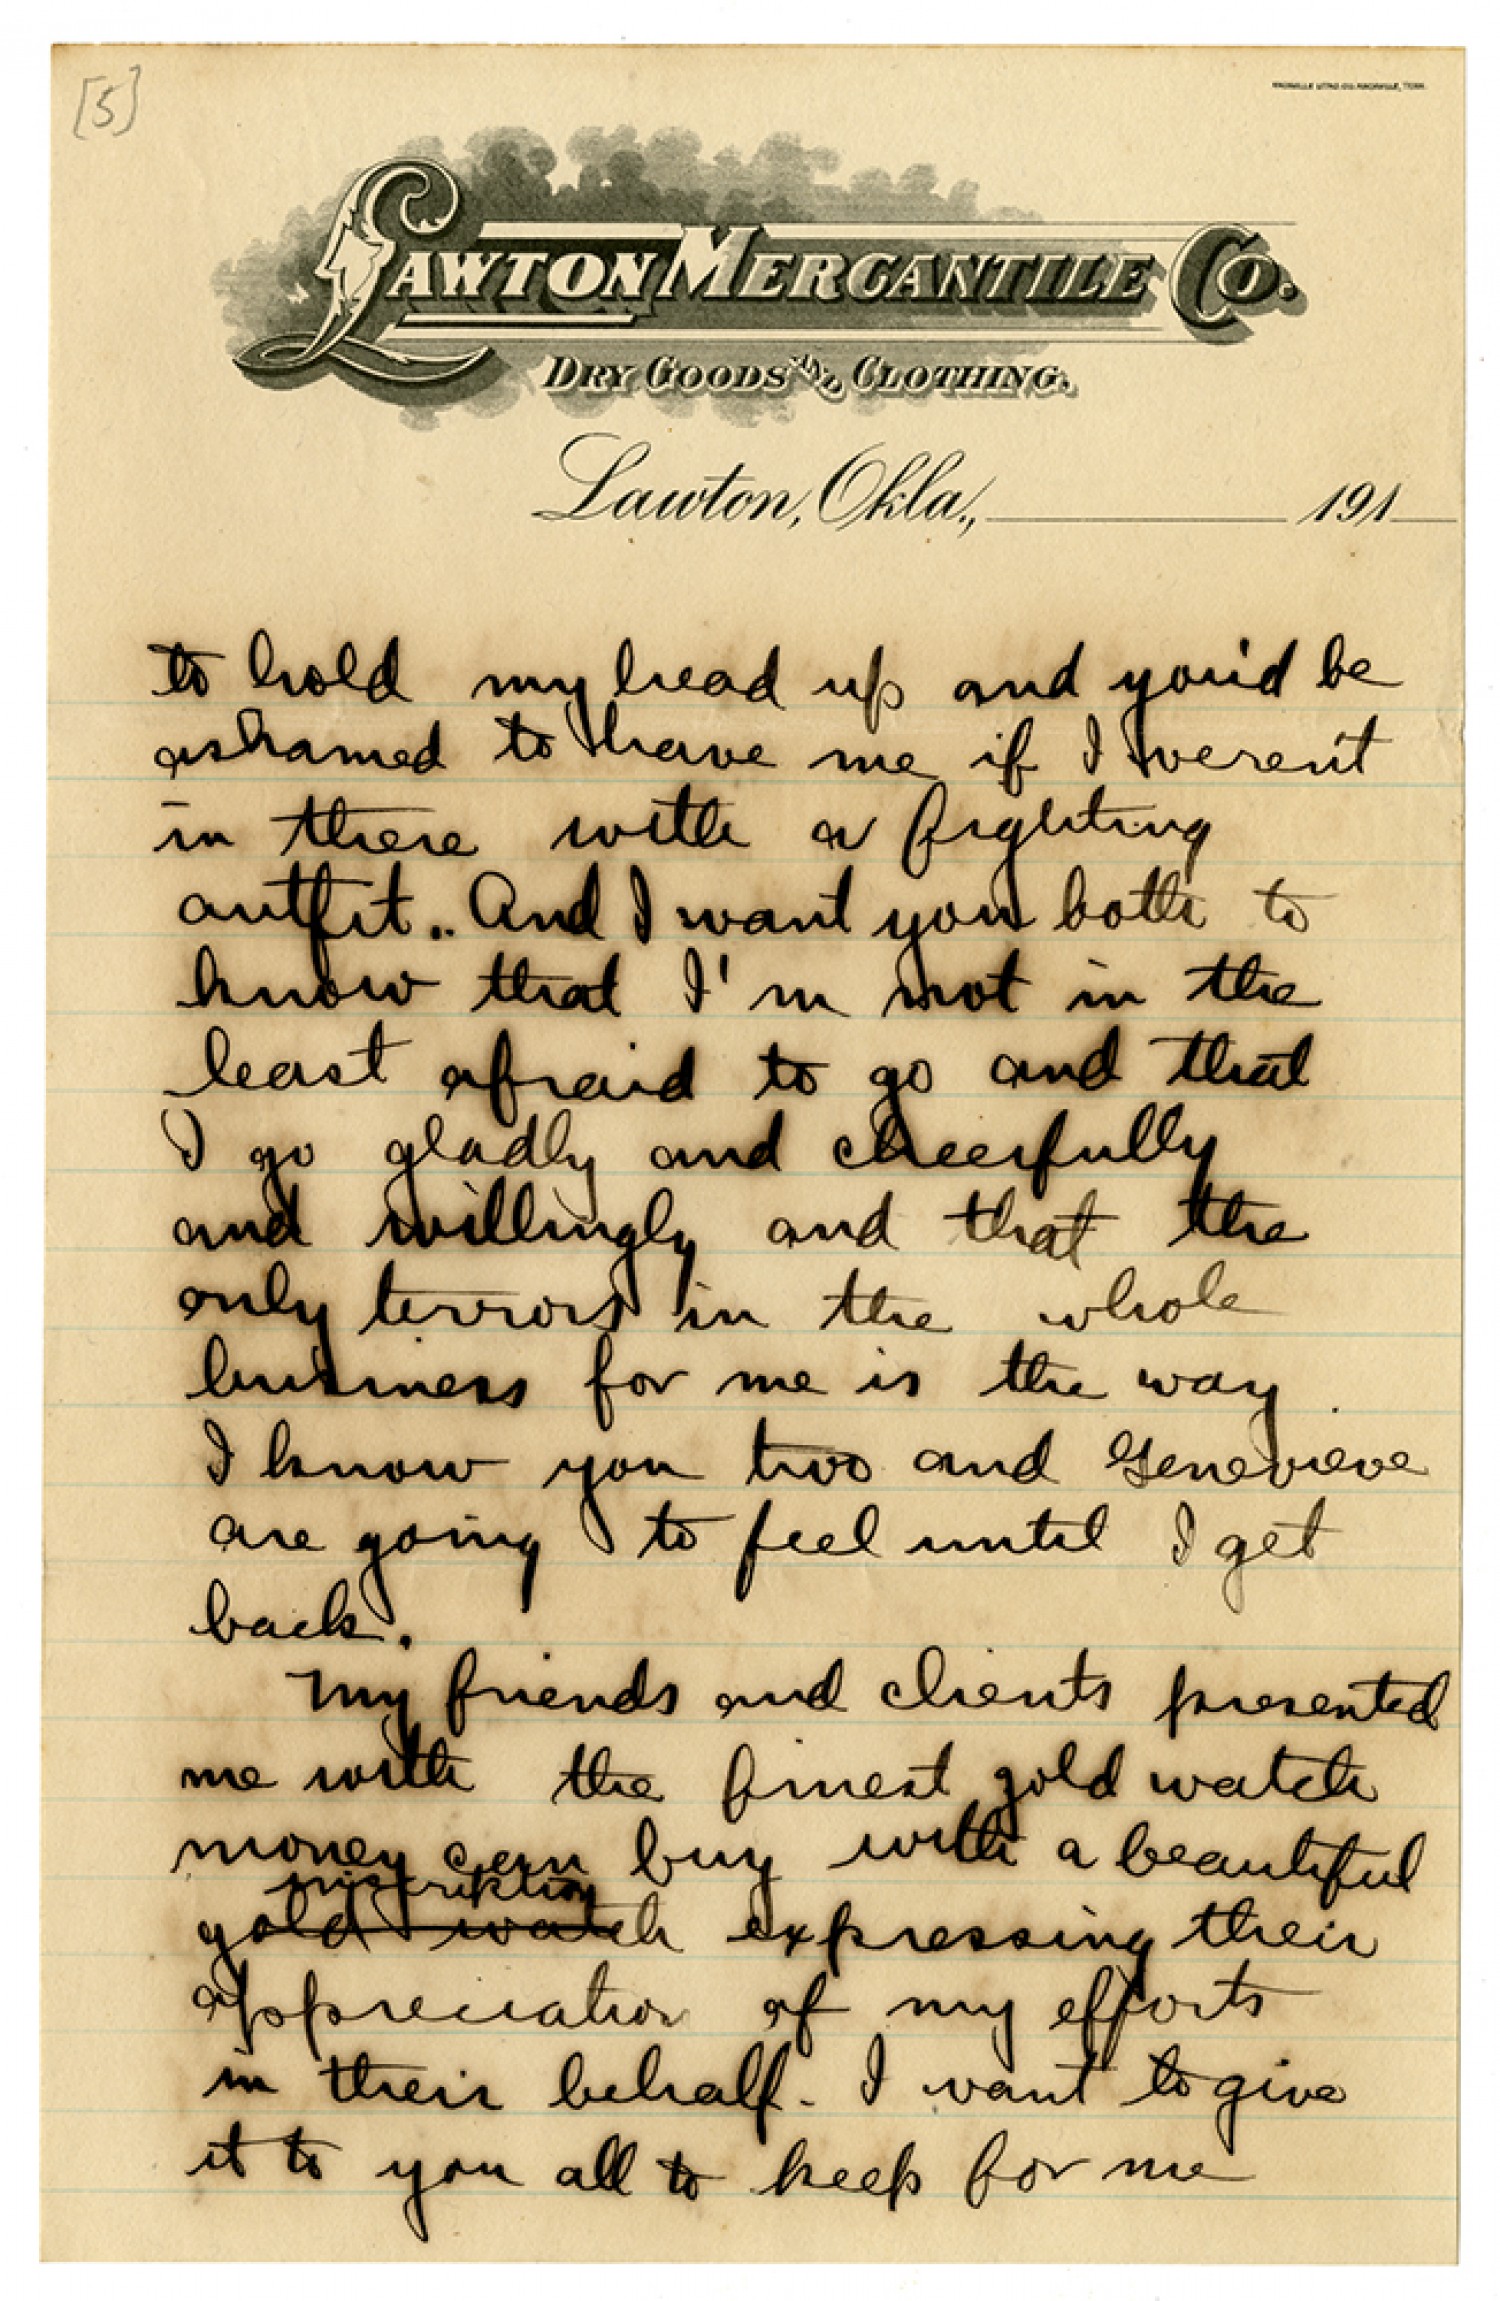 [5]
KNOXVILLE LITHO. CO. KNOXVILLE, TENN.
LAWTON MERCANTILE CO.
DRY GOODS AND CLOTHING.
Lawton, Okla., 191
to hold my head up and you'd be
ashamed to have me if I weren't
in there with a fighting
outfit.. And I want you both to
know that I'm not in the
least afraid to go and that
I go gladly and cheerfully
and willingly and that the
only terrors in the whole
business for me is the way
I know you two and Genevieve
are going to feel until I get
back.
My friends and clients presented
me with the finest gold watch
money can buy with a beautiful
inscription
gold watch expressing their
appreciation of my efforts
in their behalf. I want to give
it to you all to keep for me